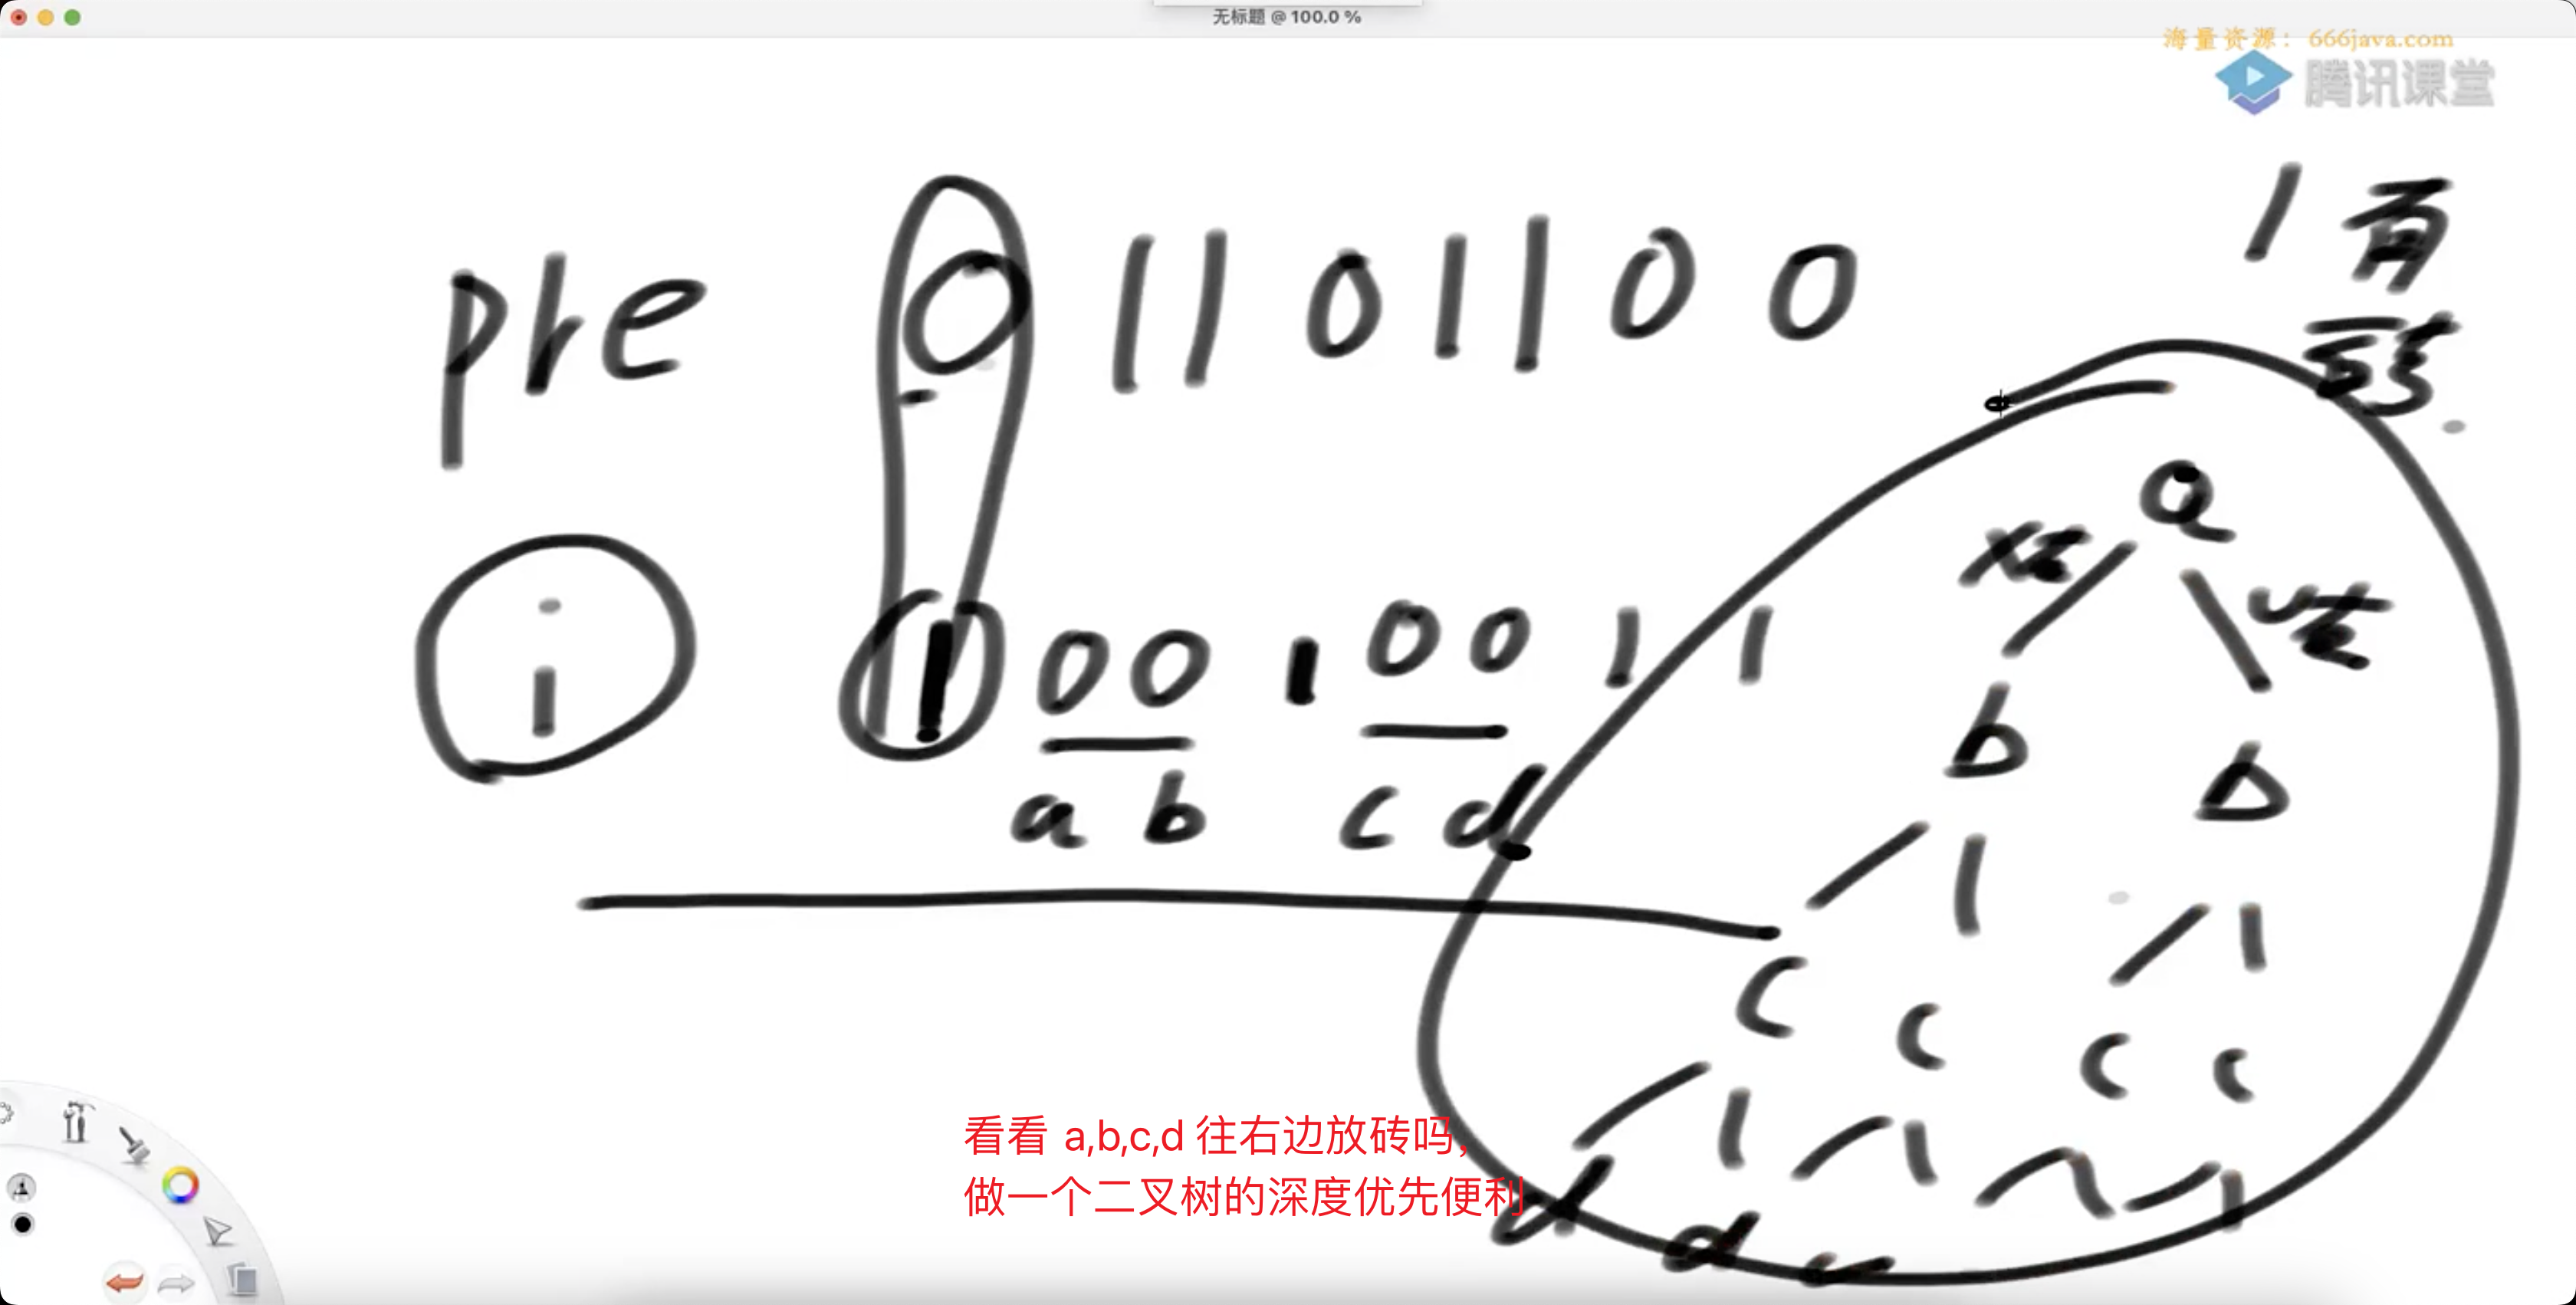 无标题 @ 100.0 %
海量资源：666java.com
腾讯课堂
1 有
pre 0 1 1 0 1 1 0 0
a
i 1 0 0 1 0 0 1 1
b b
a b c d
c c c c
看看 a,b,c,d 往右边放砖吗,
做一个二叉树的深度优先便利
d d